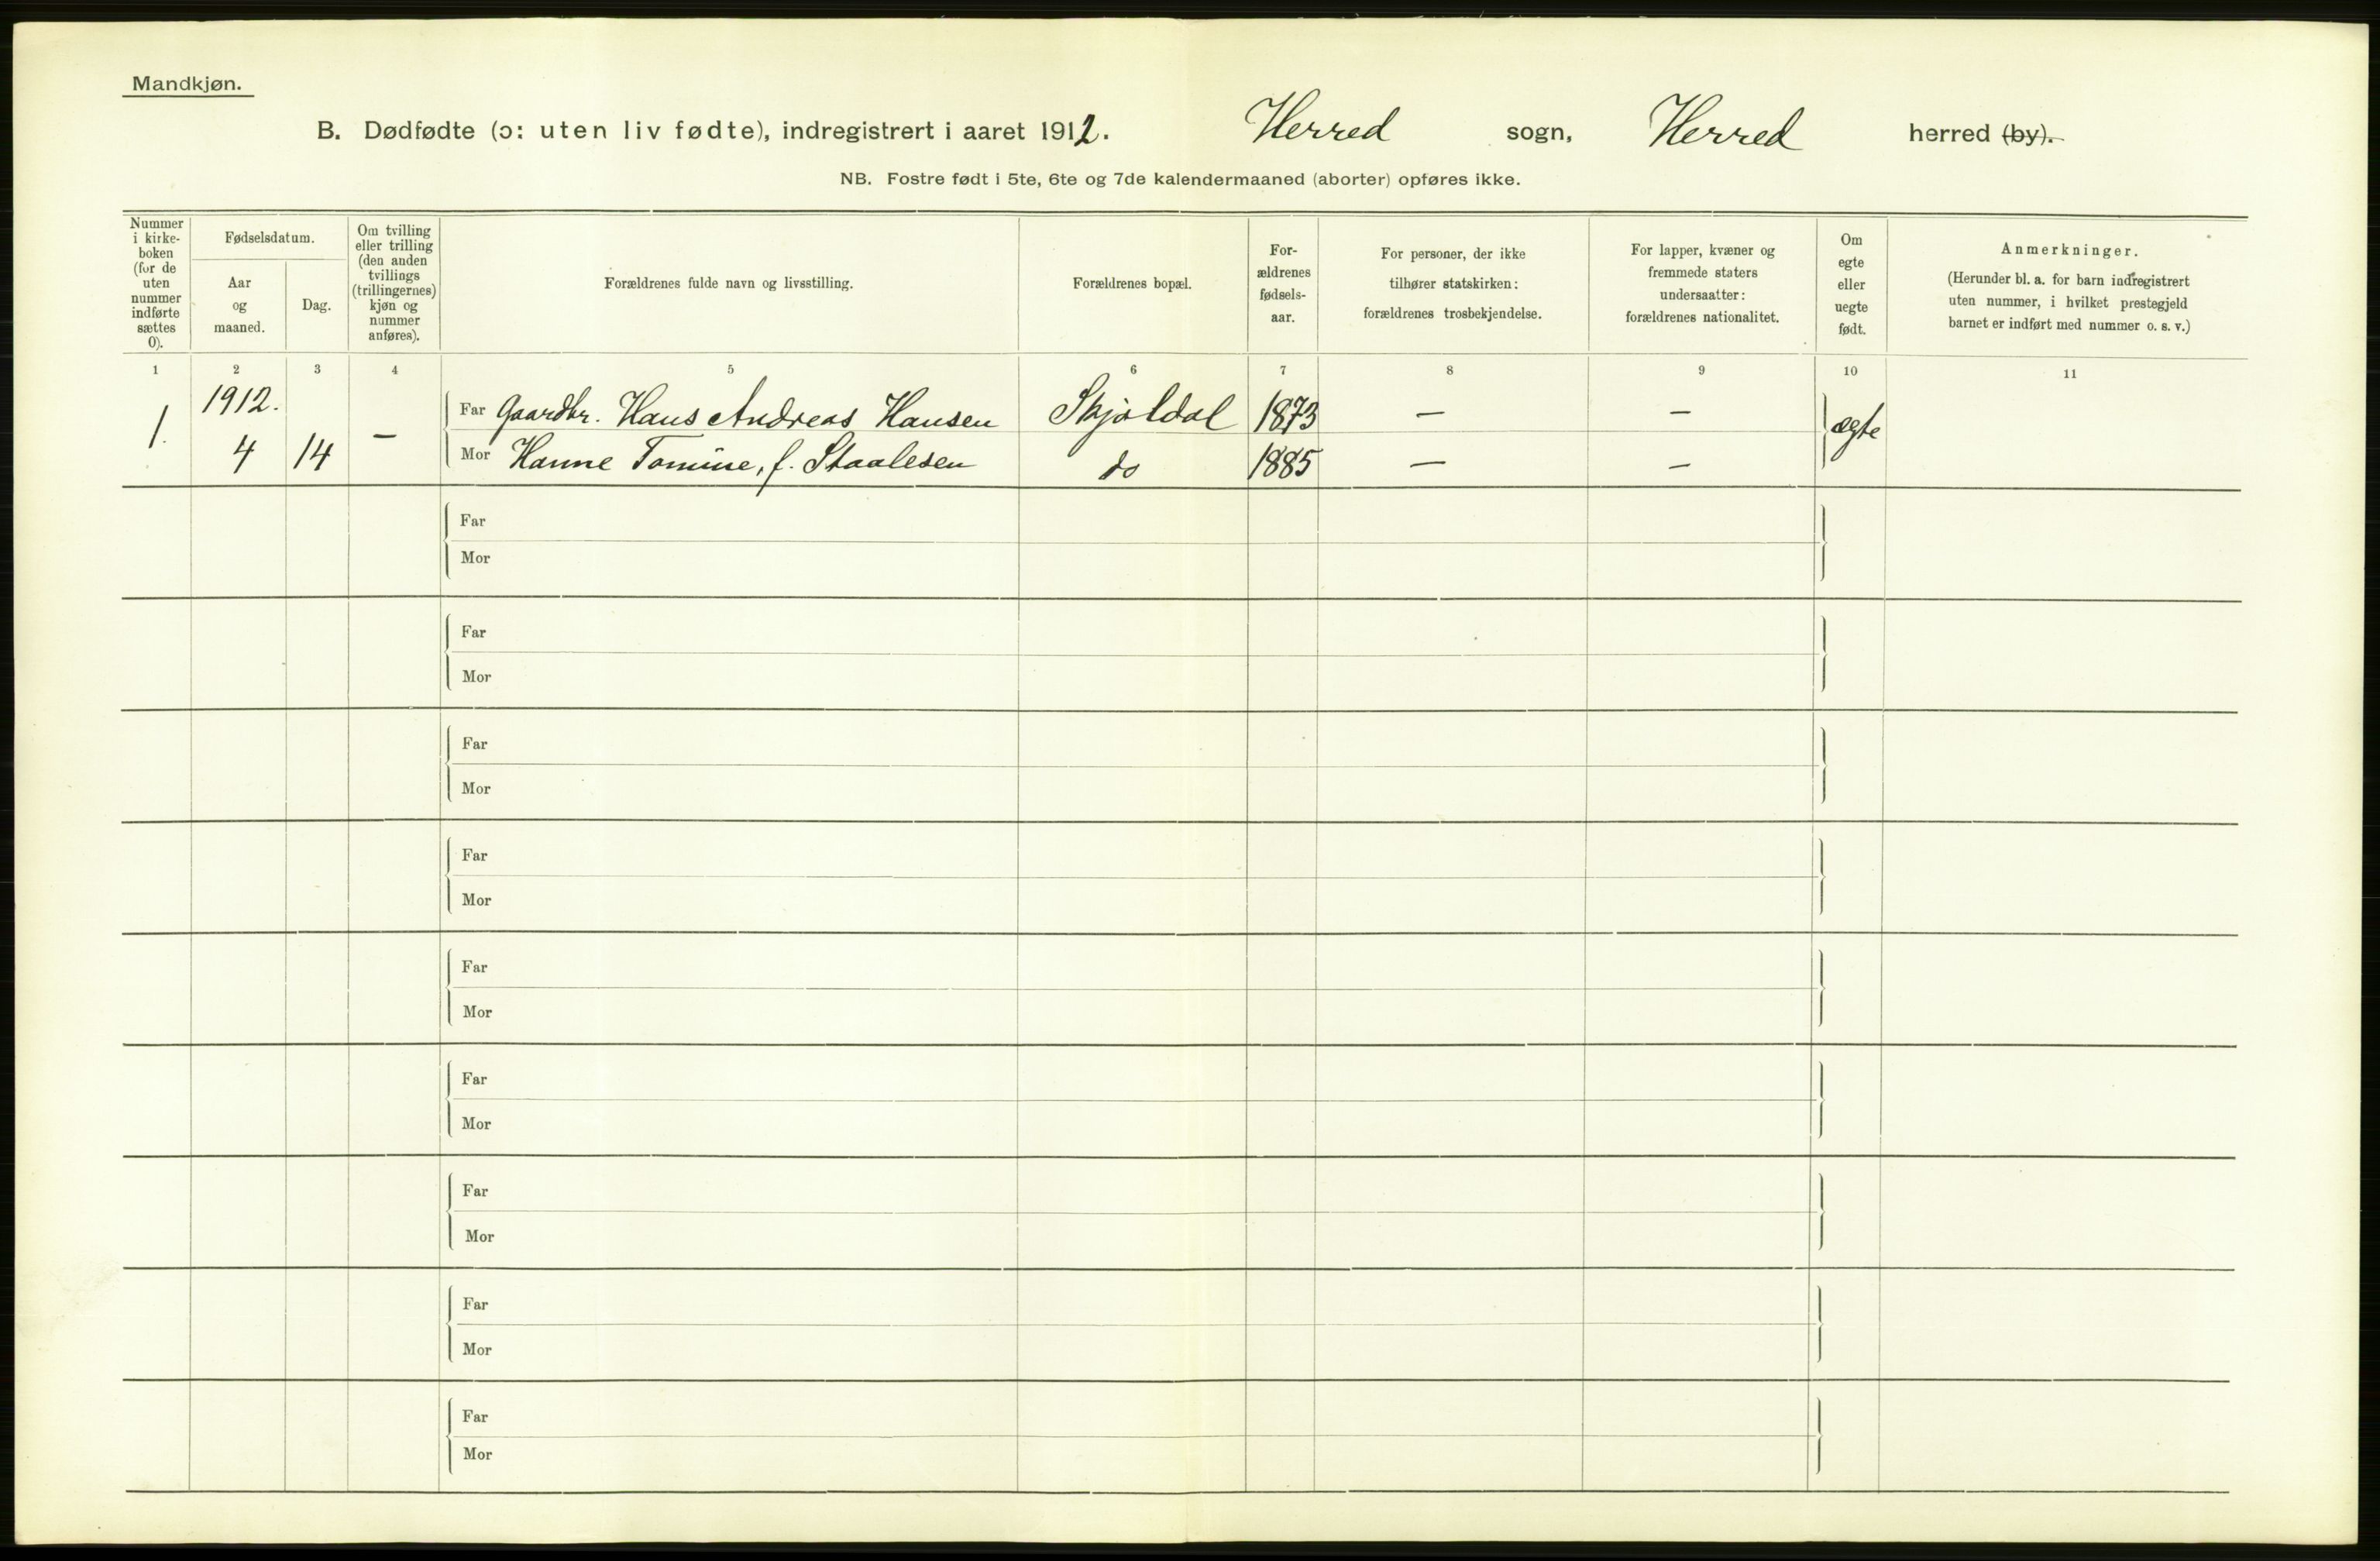 Mandkjøn.
B. Dødfødte (ɔ: uten liv fødte), indregistrert i aaret 1912. Herred sogn, Herred herred (by).
NB. Fostre født i 5te, 6te og 7de kalendermaaned (aborter) opføres ikke.
Nummer i kirke- boken (for de uten nummer indførte sættes 0).
Fødselsdatum.
Aar og maaned.
Dag.
Om tvilling eller trilling (den anden tvillings (trillingernes) kjøn og nummer anføres).
Forældrenes fulde navn og livsstilling.
Forældrenes bopæl.
For- ældrenes fødsels- aar.
For personer, der ikke tilhører statskirken: forældrenes trosbekjendelse.
For lapper, kvæner og fremmede staters undersaatter: forældrenes nationalitet.
Om egte eller uegte født.
Anmerkninger.
(Herunder bl. a. for barn indregistrert uten nummer, i hvilket prestegjeld barnet er indført med nummer o. s. v.)
1 2 3 4 5 6 7 8 9 10 11
1912.
1. 4 14 –
Far Gaardbr. Hans Andreas Hansen Skjoldal 1873 – – ægte
Mor Hanne Tomine, f. Staalesen do 1885 – –
Far
Mor
Far
Mor
Far
Mor
Far
Mor
Far
Mor
Far
Mor
Far
Mor
Far
Mor
Far
Mor